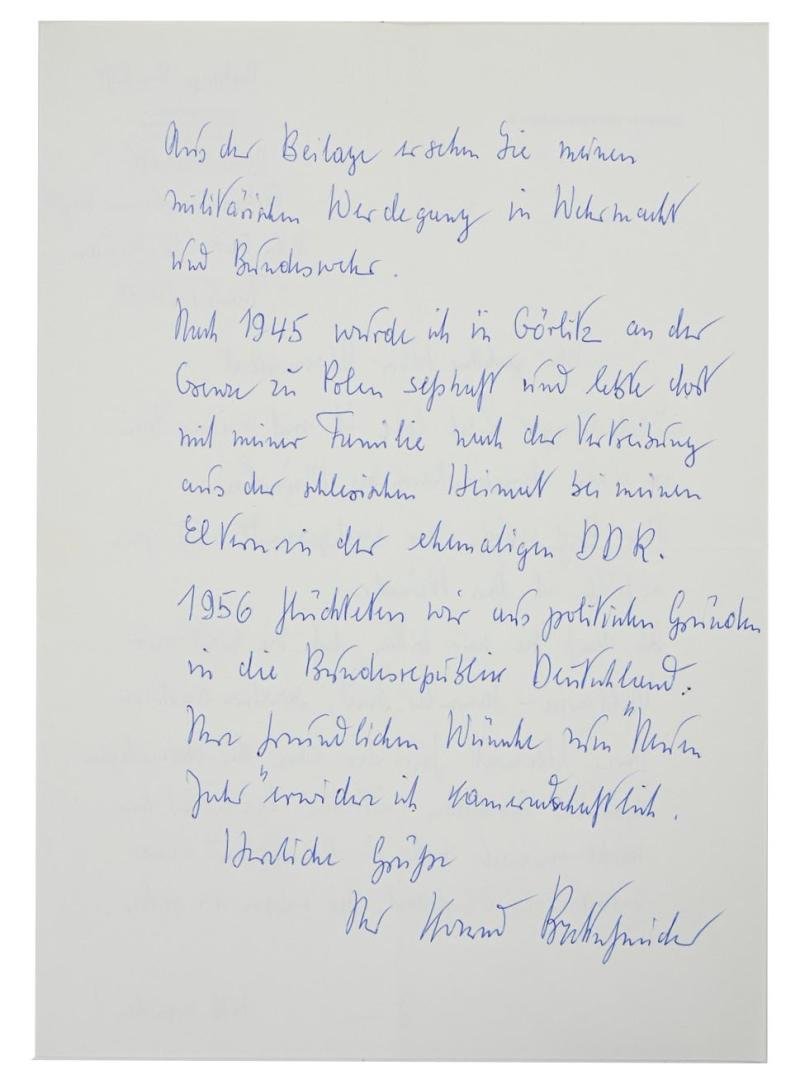 Aus der Beilage ersehen Sie meinen
militärischen Werdegang in Wehrmacht
und Bundeswehr.
Nach 1945 wurde ich in Görlitz an der
Grenze zu Polen seßhaft und lebte dort
mit meiner Familie nach der Vertreibung
aus der schlesischen Heimat bei meinen
Eltern in der ehemaligen DDR.
1956 flüchteten wir aus politischen Gründen
in die Bundesrepublik Deutschland.
Ihre freundlichen Wünsche zum "Neuen
Jahr" erwidere ich kameradschaftlich.
Herzliche Grüße
Ihr Konrad